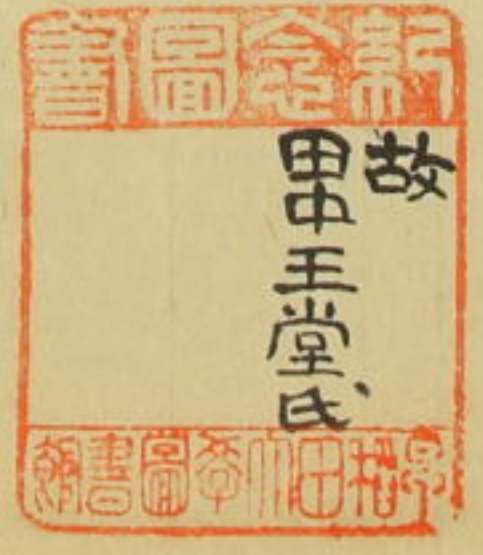 紀念圖書
故
田中王堂氏
早稻田大學圖書館